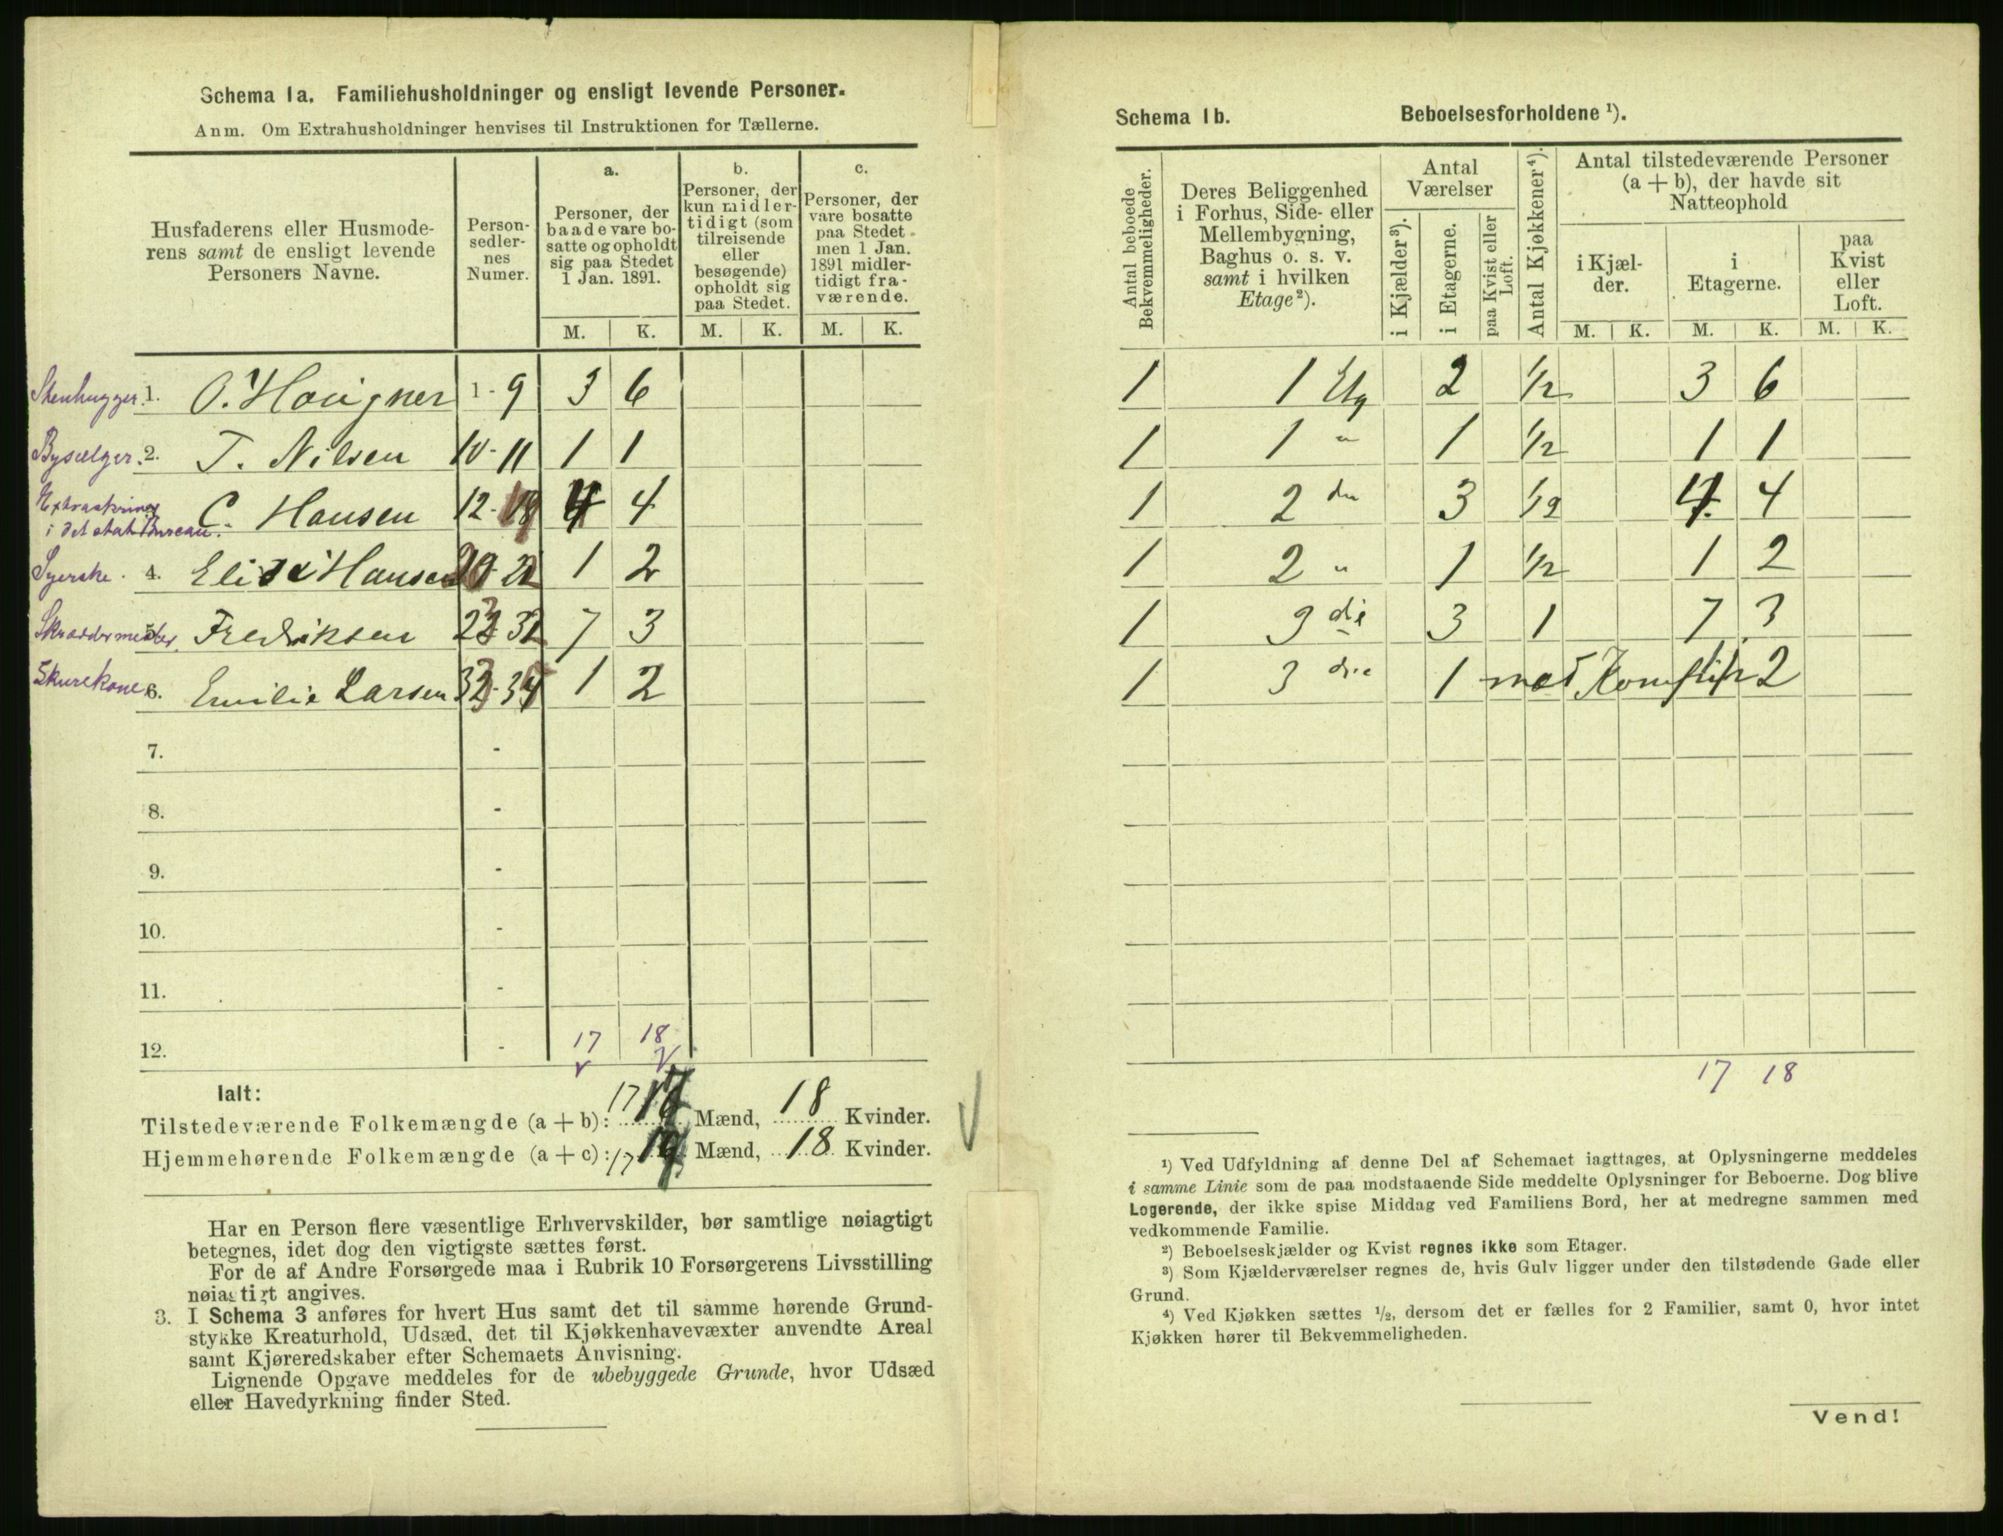 Schema 1a. Familiehusholdninger og ensligt levende Personer.
Anm. Om Extrahusholdninger henvises til Instruktionen for Tællerne.
Husfaderens eller Husmode-
rens samt de ensligt levende
Personers Navne.
Person-
sedler-
nes
Numer.
a.
Personer, der
baade vare bo-
satte og opholdt
sig paa Stedet
1 Jan. 1891.
b.
Personer, der
kun midler-
tidigt (som
tilreisende
eller
besøgende)
opholdt sig
paa Stedet.
c.
Personer, der
vare bosatte
paa Stedet
men 1 Jan.
1891 midler-
tidigt fra-
værende.
M. K. M. K. M. K.
Stenhugger 1. O. Hougner 1 - 9 3 6
Bysælger. 2. T. Nilsen 10 - 11 1 1
i det stat. Bureau. C. Hansen 12 - 4 4
Syerske. 4. Elise Hansen 1 2
Skræddermester. 5. Fredriksen 7 3
Skurekone 6. Emilie Larsen 1 2
7. -
8. -
9. -
10. -
11. -
12. - 17 18
Ialt:
Tilstedeværende Folkemængde (a + b): 17 Mænd, 18 Kvinder.
Hjemmehørende Folkemængde (a + c): 17 Mænd, 18 Kvinder.
Har en Person flere væsentlige Erhvervskilder, bør samtlige nøiagtigt
betegnes, idet dog den vigtigste sættes først.
For de af Andre Forsørgede maa i Rubrik 10 Forsørgerens Livsstilling
nøiagtigt angives.
3. I Schema 3 anføres for hvert Hus samt det til samme hørende Grund-
stykke Kreaturhold, Udsæd, det til Kjøkkenhavevæxter anvendte Areal
samt Kjøreredskaber efter Schemaets Anvisning.
Lignende Opgave meddeles for de ubebyggede Grunde, hvor Udsæd
eller Havedyrkning finder Sted.
Schema 1b. Beboelsesforholdene ¹).
Antal beboede
Bekvemmeligheder.
Deres Beliggenhed
i Forhus, Side- eller
Mellembygning,
Baghus o. s. v.
samt i hvilken
Etage ²).
Antal
Værelser
i Kjælder ³).
i Etagerne.
paa Kvist eller
Loft.
Antal Kjøkkener ⁴).
Antal tilstedeværende Personer
(a + b), der havde sit
Natteophold
i Kjæl-
der.
i
Etagerne.
paa
Kvist
eller
Loft.
M. K. M. K. M. K.
1 1 Etg 2 ½ 3 6
1 1 " 1 ½ 1 1
1 2 den 3 ½ 4 4
1 2 " 1 ½ 1 2
1 3 die 3 1 7 3
1 3 die 1 med 2
17 18
¹) Ved Udfyldning af denne Del af Schemaet iagttages, at Oplysningerne meddeles
i samme Linie som de paa modstaaende Side meddelte Oplysninger for Beboerne. Dog blive
Logerende, der ikke spise Middag ved Familiens Bord, her at medregne sammen med
vedkommende Familie.
²) Beboelseskjælder og Kvist regnes ikke som Etager.
³) Som Kjælderværelser regnes de, hvis Gulv ligger under den tilstødende Gade eller
Grund.
⁴) Ved Kjøkken sættes ½, dersom det er fælles for 2 Familier, samt 0, hvor intet
Kjøkken hører til Bekvemmeligheden.
Vend!